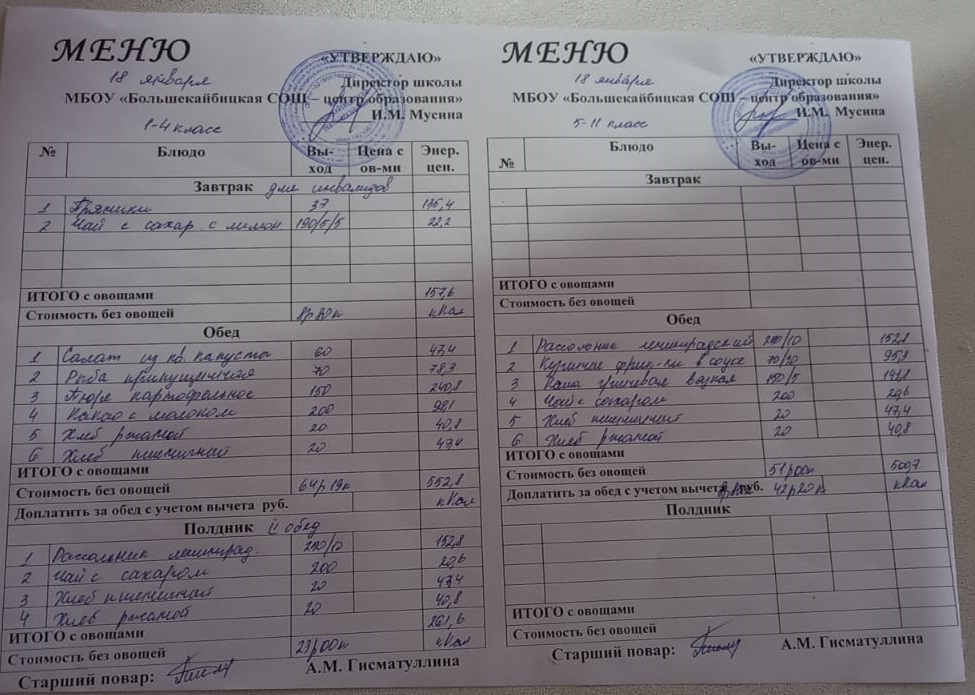 МЕНЮ
«УТВЕРЖДАЮ»
18 января
Директор школы
МБОУ «Большекайбицкая СОШ – центр образования»
И.М. Мусина
1-4 класс
№ Блюдо Вы-ход Цена с ов-ми Энер. цен.
Завтрак для инвалидов
1 Пряники 37 135,4
2 Чай с сахар с лимон 190/5/5 22,2
ИТОГО с овощами 157,6
Стоимость без овощей 8р80к кКал
Обед
1 Салат из кв. капусты 60 47,4
2 Рыба припущенная 70 78,3
3 Пюре картофельное 150 240,8
4 Какао с молоком 200 98,1
5 Хлеб ржаной 20 40,8
6 Хлеб пшеничный 20 47,4
ИТОГО с овощами
Стоимость без овощей 64р19к 552,8
Доплатить за обед с учетом вычета руб. кКал
Полдник II обед
1 Рассольник ленинград. 250/10 152,8
2 Чай с сахаром 200 20,6
3 Хлеб пшеничный 20 47,4
4 Хлеб ржаной 20 40,8
ИТОГО с овощами 261,6
Стоимость без овощей 23р00к кКал
Старший повар: А.М. Гисматуллина
МЕНЮ
«УТВЕРЖДАЮ»
18 января
Директор школы
МБОУ «Большекайбицкая СОШ – центр образования»
И.М. Мусина
5-11 класс
№ Блюдо Вы-ход Цена с ов-ми Энер. цен.
Завтрак
ИТОГО с овощами
Стоимость без овощей
Обед
1 Рассольник ленинградский 250/10 152,8
2 Куриные фрик-ки в соусе 70/30 95,3
3 Каша гречневая вязкая 150/5
4 Чай с сахаром 200 20,6
5 Хлеб пшеничный 20 47,4
6 Хлеб ржаной 20 40,8
ИТОГО с овощами
Стоимость без овощей 51р00к 500,7
Доплатить за обед с учетом вычета руб. 42р20к кКал
Полдник
ИТОГО с овощами
Стоимость без овощей
Старший повар: А.М. Гисматуллина